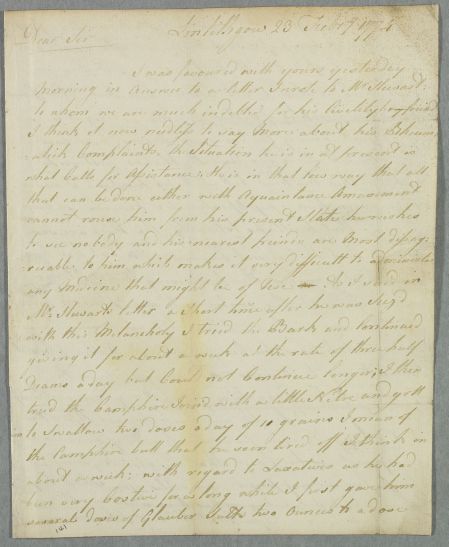 Dear Sir Linlithgow 23 Febry 1774
I was favoured with yours yesterday
Morning in answer to a letter I wrote to Mr Stewart
to whom we are much indebted for his Civility
I think it now needless to say more about his
which Complaints, the Situation he is in at present is
what Calls for Assistance; he is in that low way that all
that can be done either with Aquaintance Amusement
cannot rouse him from his present State he wishes
to see nobody and his nearest friends are most disag-
reeable to him which makes it very difficult to administer
any Medicine that might be of Use As I said in
Mr Stewarts letter a Short time after he was Seiz'd
with this Melancholy I tried the Bark and continued
giving it for about a week at the rate of three half
Drams a day but Coud not Continue longer; I then
tried the Camphire joined with a little Nitre and gott
to Swallow two doses a day of 10 grains I mean of
the Camphire butt that he soon tired off I think in
about a week: with regard to Laxatives as he had
been very costive for a long while I first gave him
several doses of Glauber Salts two Ounces to a dose